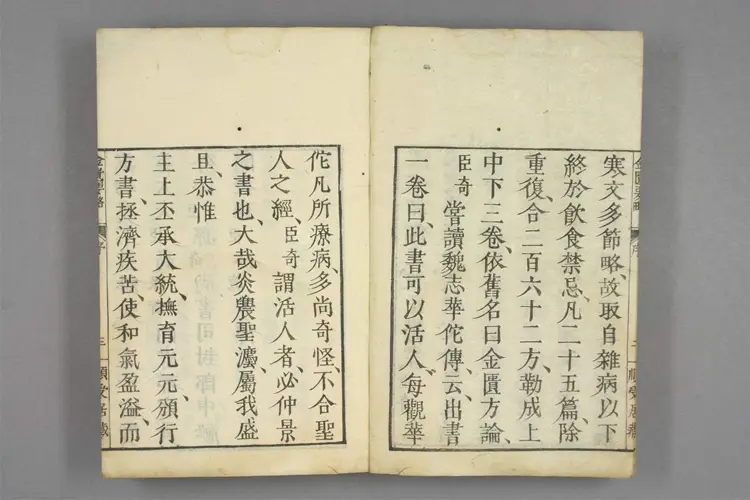 金匱要略 序 二
寒文多節略、故取自雜病以下
終於飲食禁忌、凡二十五篇、除
重復、合二百六十二方、勒成上
中下三卷、依舊名曰金匱方論、
臣奇嘗讀魏志華佗傳、云出書
一卷曰、此書可以活人、每觀華
佗凡所療病、多尚奇怪、不合聖
人之經、臣奇謂活人者、必仲景
之書也、大哉炎農聖灋、屬我盛
旦、恭惟
主上丕承大統、撫育元元、頒行
方書、拯濟疾苦、使和氣盈溢、而
金匱要略 序 三